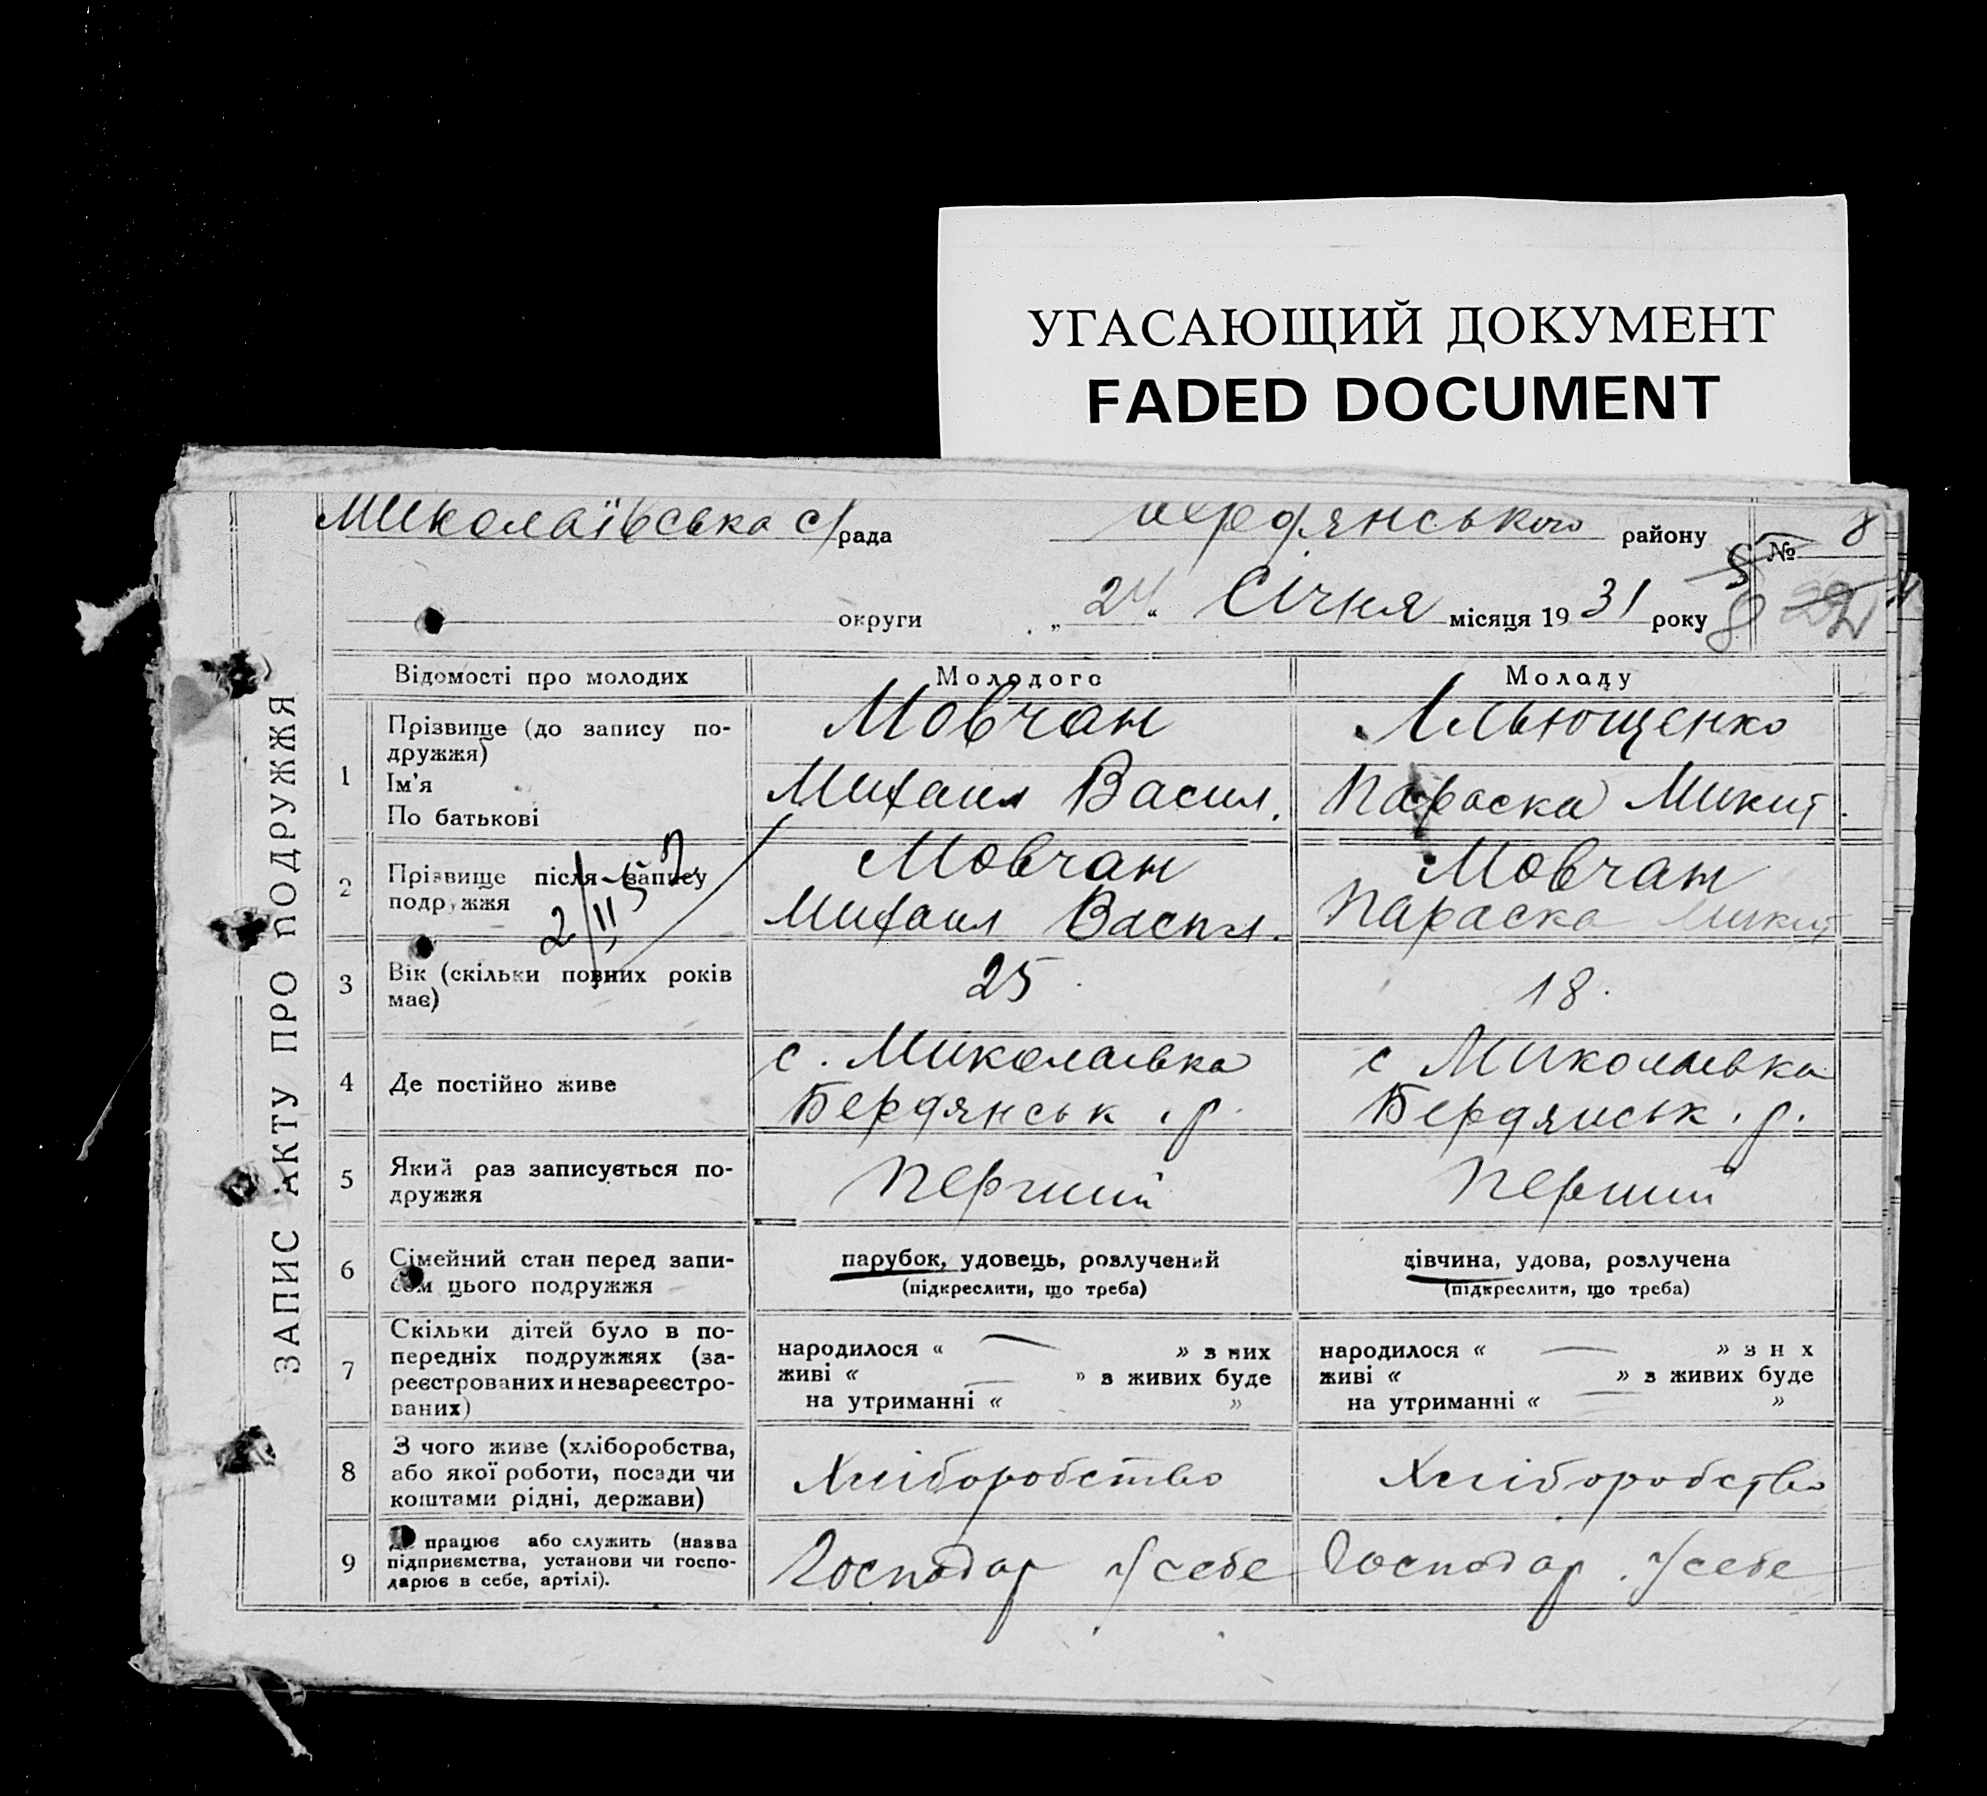 УГАСАЮЩИЙ ДОКУМЕНТ
FADED DOCUMENT
Миколаївська с/рада Бердянського району № 8
округи „24“ Січня місяця 1931 року 5 8 22
ЗАПИС АКТУ ПРО ПОДРУЖЖЯ
Відомості про молодих Молодого Молоду
1 Прізвище (до запису по-
дружжя)
Ім'я
По батькові
Мовчан
Михаил Васил.
Ільющенко
Параска Микит.
2 Прізвище після запису
подружжя
2/II 52
Мовчан
Михаил Васил.
Мовчан
Параска Микит
3 Вік (скільки повних років
має)
25
18.
4 Де постійно живе
с. Миколаівка
Бердянськ. р.
с Миколаівка
Бердянськ. р.
5 Який раз записується по-
дружжя
Перший
Перший
6 Сімейний стан перед запи-
сом цього подружжя
парубок, удовець, розлучений
(підкреслити, що треба)
дівчина, удова, розлучена
(підкреслити, що треба)
7 Скільки дітей було в по-
передніх подружжях (за-
реєстрованих и незареєстро-
ваних)
народилося « — » з них
живі « — » з живих буде
на утриманні « »
народилося « — » з н х
живі « — » з живих буде
на утриманні « »
8 З чого живе (хліборобства,
або якої роботи, посади чи
коштами рідні, держави)
Хліборобство
Хліборобство
9 Де працює або служить (назва
підприємства, установи чи госпо-
дарює в себе, артілі).
Господар у себе
Господар у себе